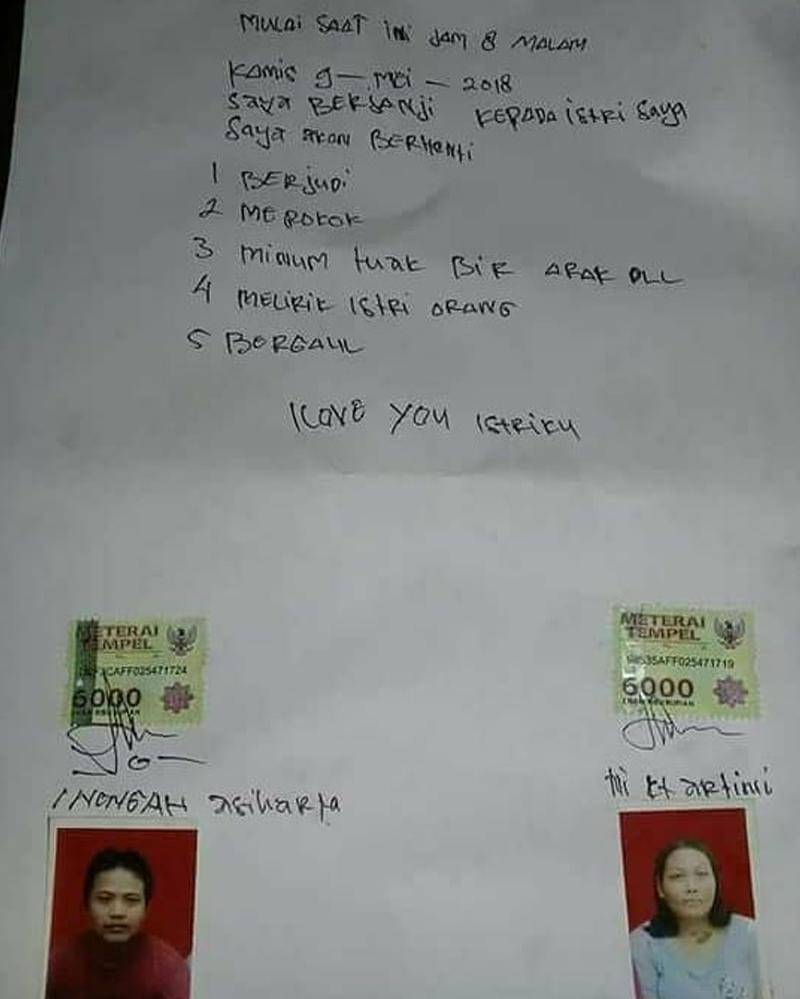 MULAI SAAT ini JAM 8 MALAM
KAMIS 9 — MEI — 2018
SAYA BERJANJI KEPADA istri saya
Saya AKAN BERHENTI
1 BERJUDI
2 MEROKOK
3 MINUM tuak BIR ARAK DLL
4 MELIRIK IStRi ORANG
5 BERGAUL
I LOVE YOU IStRiKU
METERAI
TEMPEL
CAFF025471724
6000
ENAM RIBU RUPIAH
I NENGAH asiharta
METERAI
TEMPEL
AFF025471719
6000
ENAM RIBU RUPIAH
Ni Kt artini